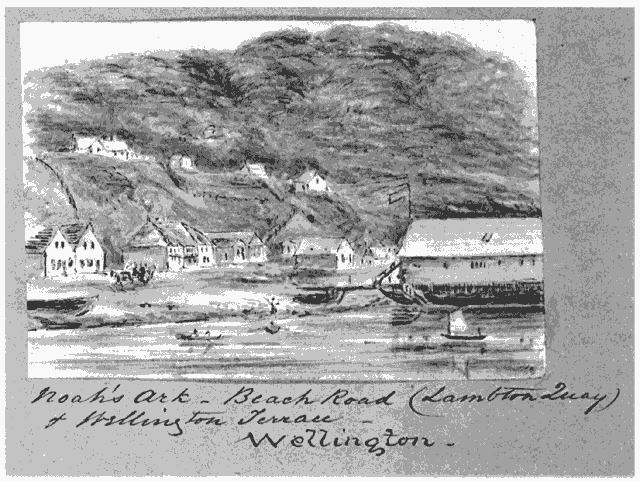 Noah's Ark - Beach Road (Lambton Quay)
& Wellington Terrace -
Wellington -